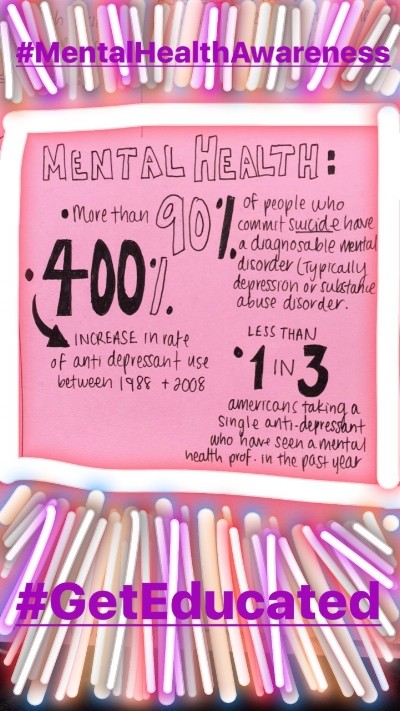 #MentalHealthAwareness
MENTAL HEALTH:
• More than 90% of people who
commit suicide have
a diagnosable mental
disorder (Typically
depression or substance
abuse disorder.
• 400%
INCREASE in rate
of anti depressant use
between 1988 + 2008
LESS THAN
• 1 IN 3
americans taking a
single anti-depressant
who have seen a mental
health prof. in the past year
#GetEducated